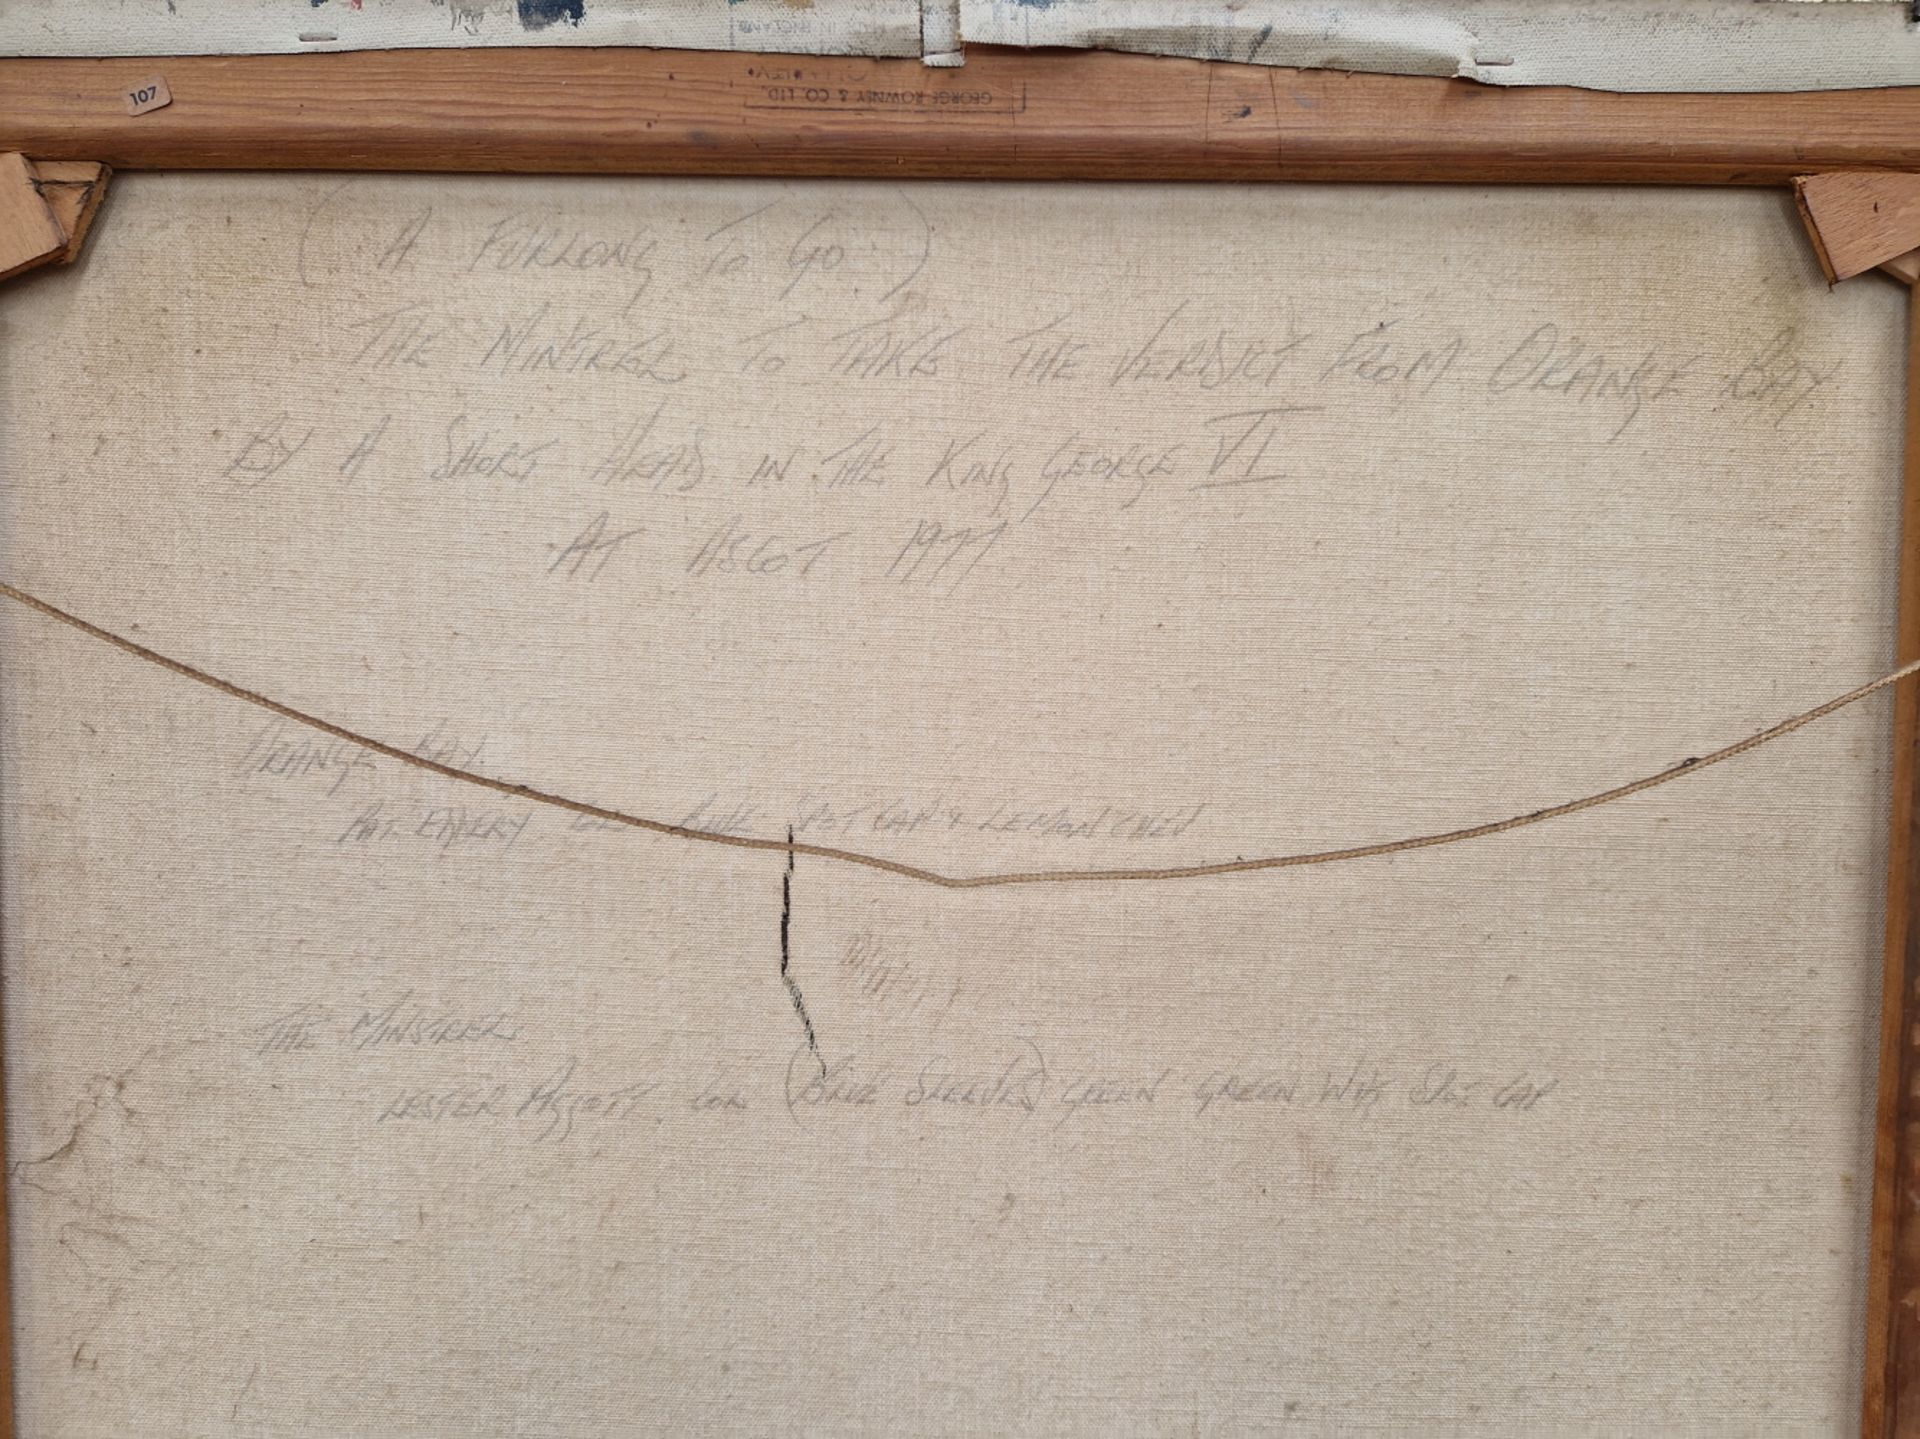 107
GEORGE ROWNEY & CO LTD.
ENGLAND
(A FURLONG TO GO.)
THE MINSTREL TO TAKE THE VERDICT FROM ORANGE BAY
BY A SHORT HEAD IN THE KING GEORGE VI
AT ASCOT 1977
ORANGE BAY.
PAT EDDERY COL SPOT CAP & LEMON
THE MINSTREL
LESTER PIGGOTT. COL (BLUE SLEEVES) GREEN GREEN SPOT CAP